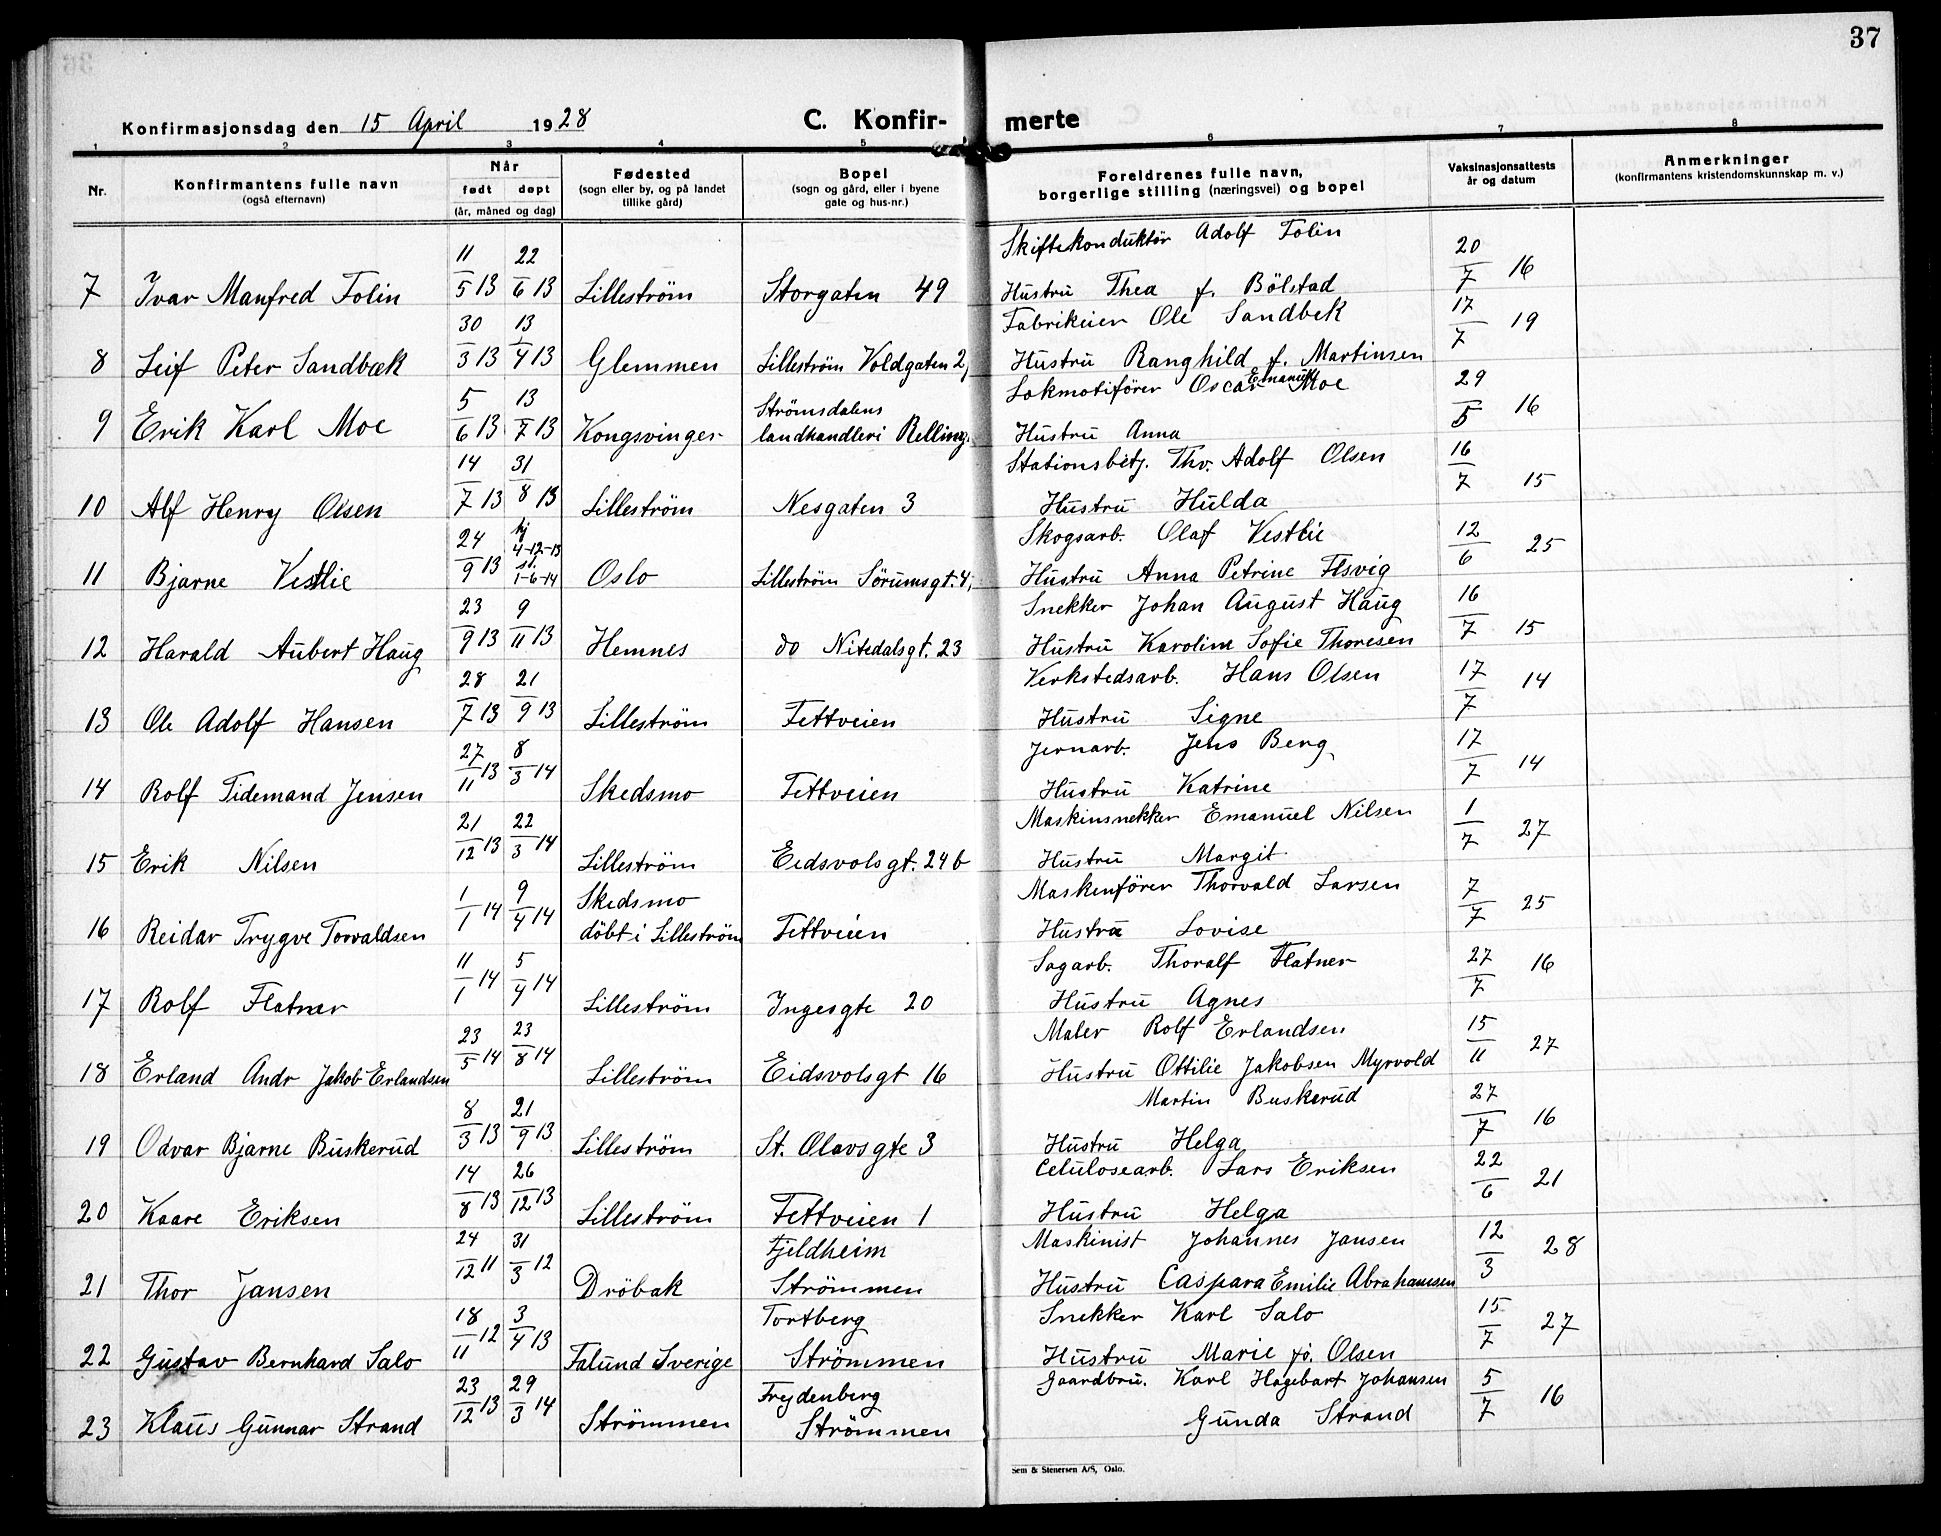 37
Konfirmasjonsdag den 15 April 1928 C. Konfir- merte
1 2 3 4 5 6 7 8
Nr. Konfirmantens fulle navn (også efternavn) Når født døpt (år, måned og dag) Fødested (sogn eller by, og på landet tillike gård) Bopel (sogn og gård, eller i byene gate og hus-nr.) Foreldrenes fulle navn, borgerlige stilling (næringsvei) og bopel Vaksinasjonsattests år og datum Anmerkninger (konfirmantens kristendomskunnskap m. v.)
Skiftekonduktör Adolf Tolin
7 Ivar Manfred Tolin 11/5 13 22/6 13 Lilleström Storgaten 49 Hustru Thea f. Bölstad 20/7 16
Fabrikeier Ole Sandbek
8 Leif Peter Sandbæk 30/3 13 13/4 13 Glemmen Lilleström Voldgaten 2, Hustru Ranghild f. Martinsen 17/7 19
Lokmotifören Oscar Emanuel Moe
9 Erik Karl Moe 5/6 13 13/7 13 Kongsvinger Strömsdalens landhandleri Relling. Hustru Anna 29/5 16
Stationsbetj. Thv. Adolf Olsen
10 Alf Henry Olsen 14/7 13 31/8 13 Lilleström Nesgaten 3 Hustru Hulda 16/7 15
Skogsarb. Olaf Vestlie
11 Bjarne Vestlie 24/9 13 hj 4-12-13 st. 1-6-14 Oslo Lilleström Sörumsgt. 4, Hustru Anna Petrine Elsvig 12/6 25
Snekker Johan August Haug
12 Harald Aubert Haug 23/9 13 9/11 13 Hemnes do Nitedalsgt. 23 Hustru Karoline Sofie Thoresen 16/7 15
Verkstedsarb. Hans Olsen
13 Ole Adolf Hansen 28/7 13 21/9 13 Lilleström Fettveien Hustru Signe 17/7 14
Jernarb. Jens Berg
14 Rolf Tidemand Jensen 27/11 13 8/3 14 Skedsmo Fettveien Hustru Katrine 17/7 14
Maskinsnekker Emanuel Nilsen
15 Erik Nilsen 21/12 13 22/3 14 Lilleström Eidsvolsgt. 24 b Hustru Margit 1/7 27
Maskenförer Thorvald Larsen
16 Reidar Trygve Torvaldsen 1/1 14 9/4 14 Skedsmo döbt i Lilleström Fettveien Hustru Lovise 7/7 25
Sagarb. Thoralf Flatner
17 Rolf Flatner 11/1 14 5/4 14 Lilleström Ingesgte 20 Hustru Agnes 27/7 16
Maler Rolf Erlandsen
18 Erland Andr Jakob Erlandsen 23/5 14 23/8 14 Lilleström Eidsvolsgt 16 Hustru Ottilie Jakobsen Myrvold 15/11 27
Martin Buskerud
19 Odvar Bjarne Buskerud 8/3 13 21/9 13 Lilleström St. Olavsgte 3 Hustru Helga 27/7 16
Celulosearb. Lars Eriksen
20 Kaare Eriksen 14/8 13 26/12 13 Lilleström Fettveien 1 Hustru Helga 22/6 21
Maskinist Johannes Jansen
21 Thor Jansen 24/12 11 31/3 12 Dröbak Fjeldheim Strömmen Hustru Caspara Emilie Abrahamsen 12/3 28
Snekker Karl Salo
22 Gustav Bernhard Salo 18/11 12 3/4 13 Falund Sverige Tortberg Strömmen Hustru Marie fö. Olsen 15/7 27
Gaardbru. Karl Hagebart Johansen
23 Klaus Gunnar Strand 23/12 13 29/3 14 Strömmen Frydenberg Strömmen Gunda Strand 5/7 16
Sem & Stenersen A/S, Oslo.